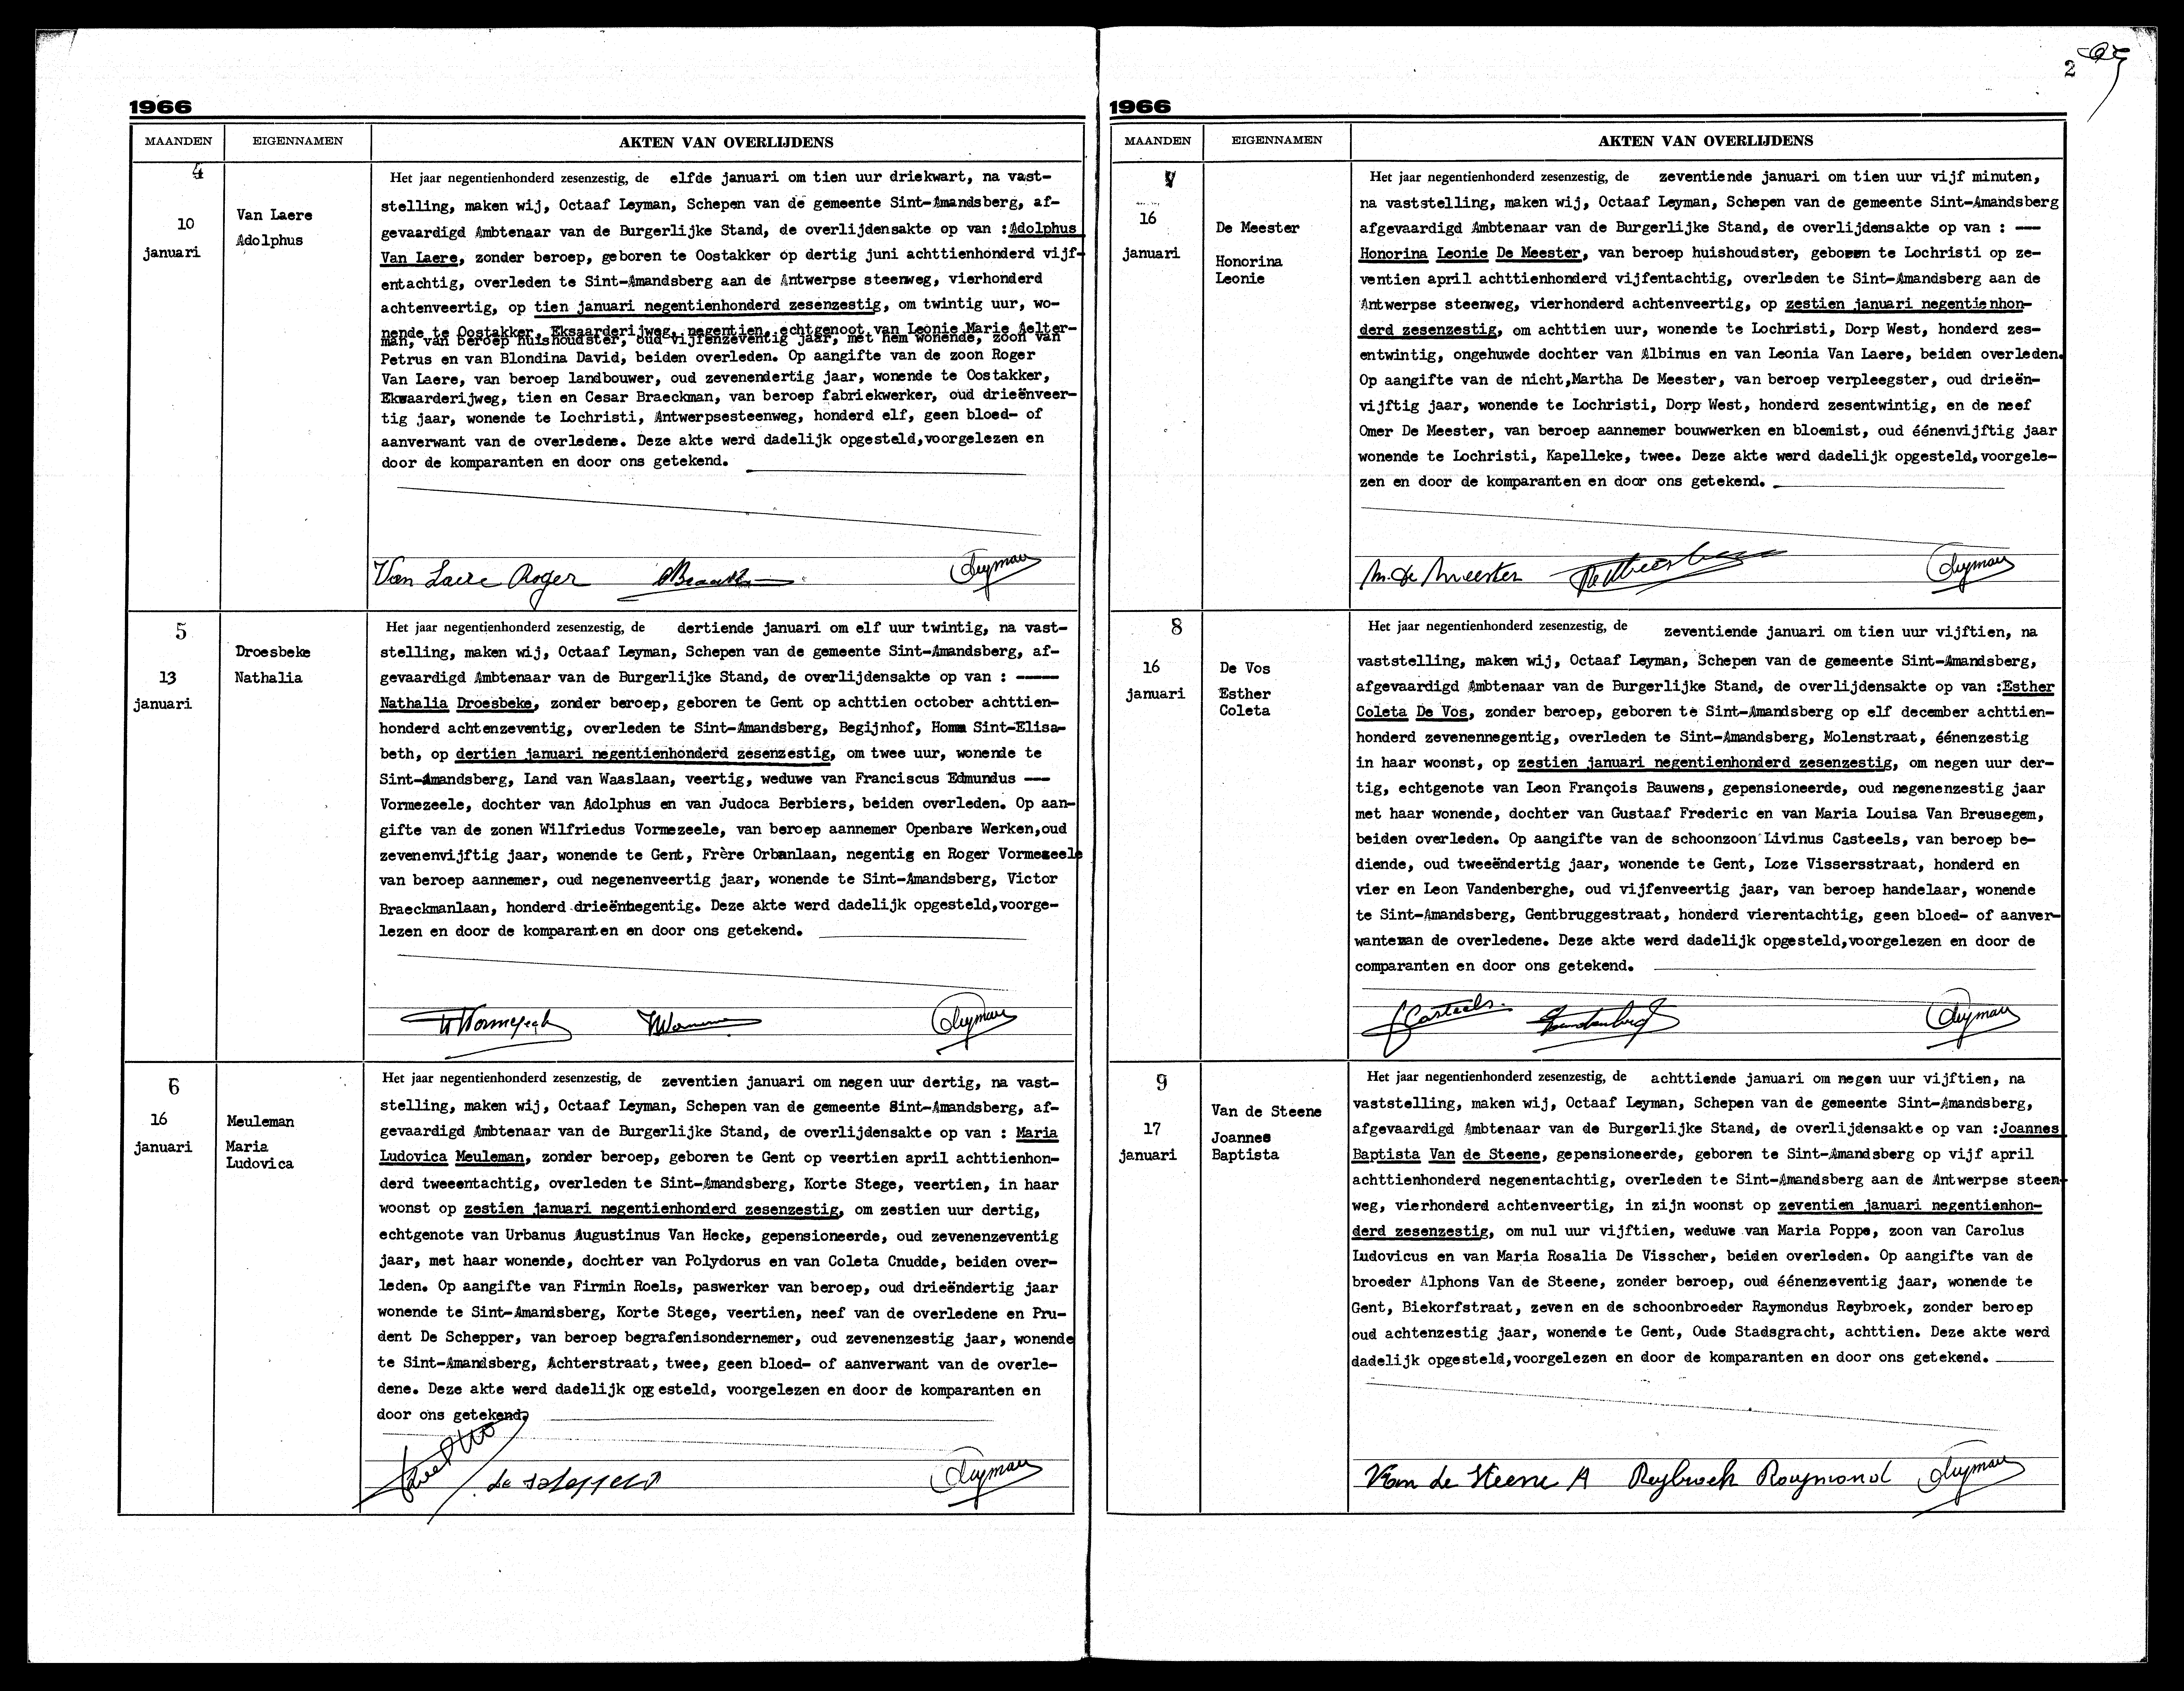 1966
MAANDEN EIGENNAMEN AKTEN VAN OVERLIJDENS
4
10
januari
Van Laere
Adolphus
Het jaar negentienhonderd zesenzestig, de elfde januari om tien uur driekwart, na vast-
stelling, maken wij, Octaaf Leyman, Schepen van de gemeente Sint-Amandsberg, af-
gevaardigd Ambtenaar van de Burgerlijke Stand, de overlijdensakte op van : Adolphus
Van Laere, zonder beroep, geboren te Oostakker op dertig juni achttienhonderd vijf-
entachtig, overleden te Sint-Amandsberg aan de Antwerpse steenweg, vierhonderd
achtenveertig, op tien januari negentienhonderd zesenzestig, om twintig uur, wo-
nende te Oostakker, Eksaarderijweg, negentien, echtgenoot van Leonie Marie Aelter-
man, van beroep huishoudster, oud vijfenzeventig jaar, met hem wonende, zoon van
Petrus en van Blondina David, beiden overleden. Op aangifte van de zoon Roger
Van Laere, van beroep landbouwer, oud zevenendertig jaar, wonende te Oostakker,
Eksaarderijweg, tien en Cesar Braeckman, van beroep fabriekwerker, oud drieënveer-
tig jaar, wonende te Lochristi, Antwerpsesteenweg, honderd elf, geen bloed- of
aanverwant van de overledene. Deze akte werd dadelijk opgesteld,voorgelezen en
door de komparanten en door ons getekend.
Van Laere Roger Leyman
5
13
januari
Droesbeke
Nathalia
Het jaar negentienhonderd zesenzestig, de dertiende januari om elf uur twintig, na vast-
stelling, maken wij, Octaaf Leyman, Schepen van de gemeente Sint-Amandsberg, af-
gevaardigd Ambtenaar van de Burgerlijke Stand, de overlijdensakte op van : -----
Nathalia Droesbeke, zonder beroep, geboren te Gent op achttien october achttien-
honderd achtenzeventig, overleden te Sint-Amandsberg, Begijnhof, Home Sint-Elisa-
beth, op dertien januari negentienhonderd zesenzestig, om twee uur, wonende te
Sint-Amandsberg, Land van Waaslaan, veertig, weduwe van Franciscus Edmundus ---
Vormezeele, dochter van Adolphus en van Judoca Berbiers, beiden overleden. Op aan-
gifte van de zonen Wilfriedus Vormezeele, van beroep aannemer Openbare Werken,oud
zevenenvijftig jaar, wonende te Gent, Frère Orbanlaan, negentig en Roger Vormezeele
van beroep aannemer, oud negenenveertig jaar, wonende te Sint-Amandsberg, Victor
Braeckmanlaan, honderd drieënnegentig. Deze akte werd dadelijk opgesteld,voorge-
lezen en door de komparanten en door ons getekend.
Leyman
6
16
januari
Meuleman
Maria
Ludovica
Het jaar negentienhonderd zesenzestig, de zeventien januari om negen uur dertig, na vast-
stelling, maken wij, Octaaf Leyman, Schepen van de gemeente Sint-Amandsberg, af-
gevaardigd Ambtenaar van de Burgerlijke Stand, de overlijdensakte op van : Maria
Ludovica Meuleman, zonder beroep, geboren te Gent op veertien april achttienhon-
derd tweeentachtig, overleden te Sint-Amandsberg, Korte Stege, veertien, in haar
woonst op zestien januari negentienhonderd zesenzestig, om zestien uur dertig,
echtgenote van Urbanus Augustinus Van Hecke, gepensioneerde, oud zevenenzeventig
jaar, met haar wonende, dochter van Polydorus en van Coleta Cnudde, beiden over-
leden. Op aangifte van Firmin Roels, paswerker van beroep, oud drieëndertig jaar
wonende te Sint-Amandsberg, Korte Stege, veertien, neef van de overledene en Pru-
dent De Schepper, van beroep begrafenisondernemer, oud zevenenzestig jaar, wonende
te Sint-Amandsberg, Achterstraat, twee, geen bloed- of aanverwant van de overle-
dene. Deze akte werd dadelijk opgesteld, voorgelezen en door de komparanten en
door ons getekend.
de schepper Leyman
2
1966
MAANDEN EIGENNAMEN AKTEN VAN OVERLIJDENS
7
16
januari
De Meester
Honorina
Leonie
Het jaar negentienhonderd zesenzestig, de zeventiende januari om tien uur vijf minuten,
na vaststelling, maken wij, Octaaf Leyman, Schepen van de gemeente Sint-Amandsberg
afgevaardigd Ambtenaar van de Burgerlijke Stand, de overlijdensakte op van : ---
Honorina Leonie De Meester, van beroep huishoudster, geboren te Lochristi op ze-
ventien april achttienhonderd vijfentachtig, overleden te Sint-Amandsberg aan de
Antwerpse steenweg, vierhonderd achtenveertig, op zestien januari negentienhon-
derd zesenzestig, om achttien uur, wonende te Lochristi, Dorp West, honderd zes-
entwintig, ongehuwde dochter van Albinus en van Leonia Van Laere, beiden overleden.
Op aangifte van de nicht,Martha De Meester, van beroep verpleegster, oud drieën-
vijftig jaar, wonende te Lochristi, Dorp West, honderd zesentwintig, en de neef
Omer De Meester, van beroep aannemer bouwwerken en bloemist, oud éénenvijftig jaar
wonende te Lochristi, Kapelleke, twee. Deze akte werd dadelijk opgesteld,voorgele-
zen en door de komparanten en door ons getekend.
M. de Meester Leyman
8
16
januari
De Vos
Esther
Coleta
Het jaar negentienhonderd zesenzestig, de zeventiende januari om tien uur vijftien, na
vaststelling, maken wij, Octaaf Leyman, Schepen van de gemeente Sint-Amandsberg,
afgevaardigd Ambtenaar van de Burgerlijke Stand, de overlijdensakte op van :Esther
Coleta De Vos, zonder beroep, geboren te Sint-Amandsberg op elf december achttien-
honderd zevenennegentig, overleden te Sint-Amandsberg, Molenstraat, éénenzestig
in haar woonst, op zestien januari negentienhonderd zesenzestig, om negen uur der-
tig, echtgenote van Leon François Bauwens, gepensioneerde, oud negenenzestig jaar
met haar wonende, dochter van Gustaaf Frederic en van Maria Louisa Van Breusegem,
beiden overleden. Op aangifte van de schoonzoon Livinus Casteels, van beroep be-
diende, oud tweeëndertig jaar, wonende te Gent, Loze Vissersstraat, honderd en
vier en Leon Vandenberghe, oud vijfenveertig jaar, van beroep handelaar, wonende
te Sint-Amandsberg, Gentbruggestraat, honderd vierentachtig, geen bloed- of aanver-
wantevan de overledene. Deze akte werd dadelijk opgesteld,voorgelezen en door de
comparanten en door ons getekend.
Casteels Leyman
9
17
januari
Van de Steene
Joannes
Baptista
Het jaar negentienhonderd zesenzestig, de achttiende januari om negen uur vijftien, na
vaststelling, maken wij, Octaaf Leyman, Schepen van de gemeente Sint-Amandsberg,
afgevaardigd Ambtenaar van de Burgerlijke Stand, de overlijdensakte op van :Joannes
Baptista Van de Steene, gepensioneerde, geboren te Sint-Amandsberg op vijf april
achttienhonderd negenentachtig, overleden te Sint-Amandsberg aan de Antwerpse steen-
weg, vierhonderd achtenveertig, in zijn woonst op zeventien januari negentienhon-
derd zesenzestig, om nul uur vijftien, weduwe van Maria Poppe, zoon van Carolus
Ludovicus en van Maria Rosalia De Visscher, beiden overleden. Op aangifte van de
broeder Alphons Van de Steene, zonder beroep, oud éénenzeventig jaar, wonende te
Gent, Biekorfstraat, zeven en de schoonbroeder Raymondus Reybroek, zonder beroep
oud achtenzestig jaar, wonende te Gent, Oude Stadsgracht, achttien. Deze akte werd
dadelijk opgesteld,voorgelezen en door de komparanten en door ons getekend.
Van de Steene A Reybroek Raymond Leyman